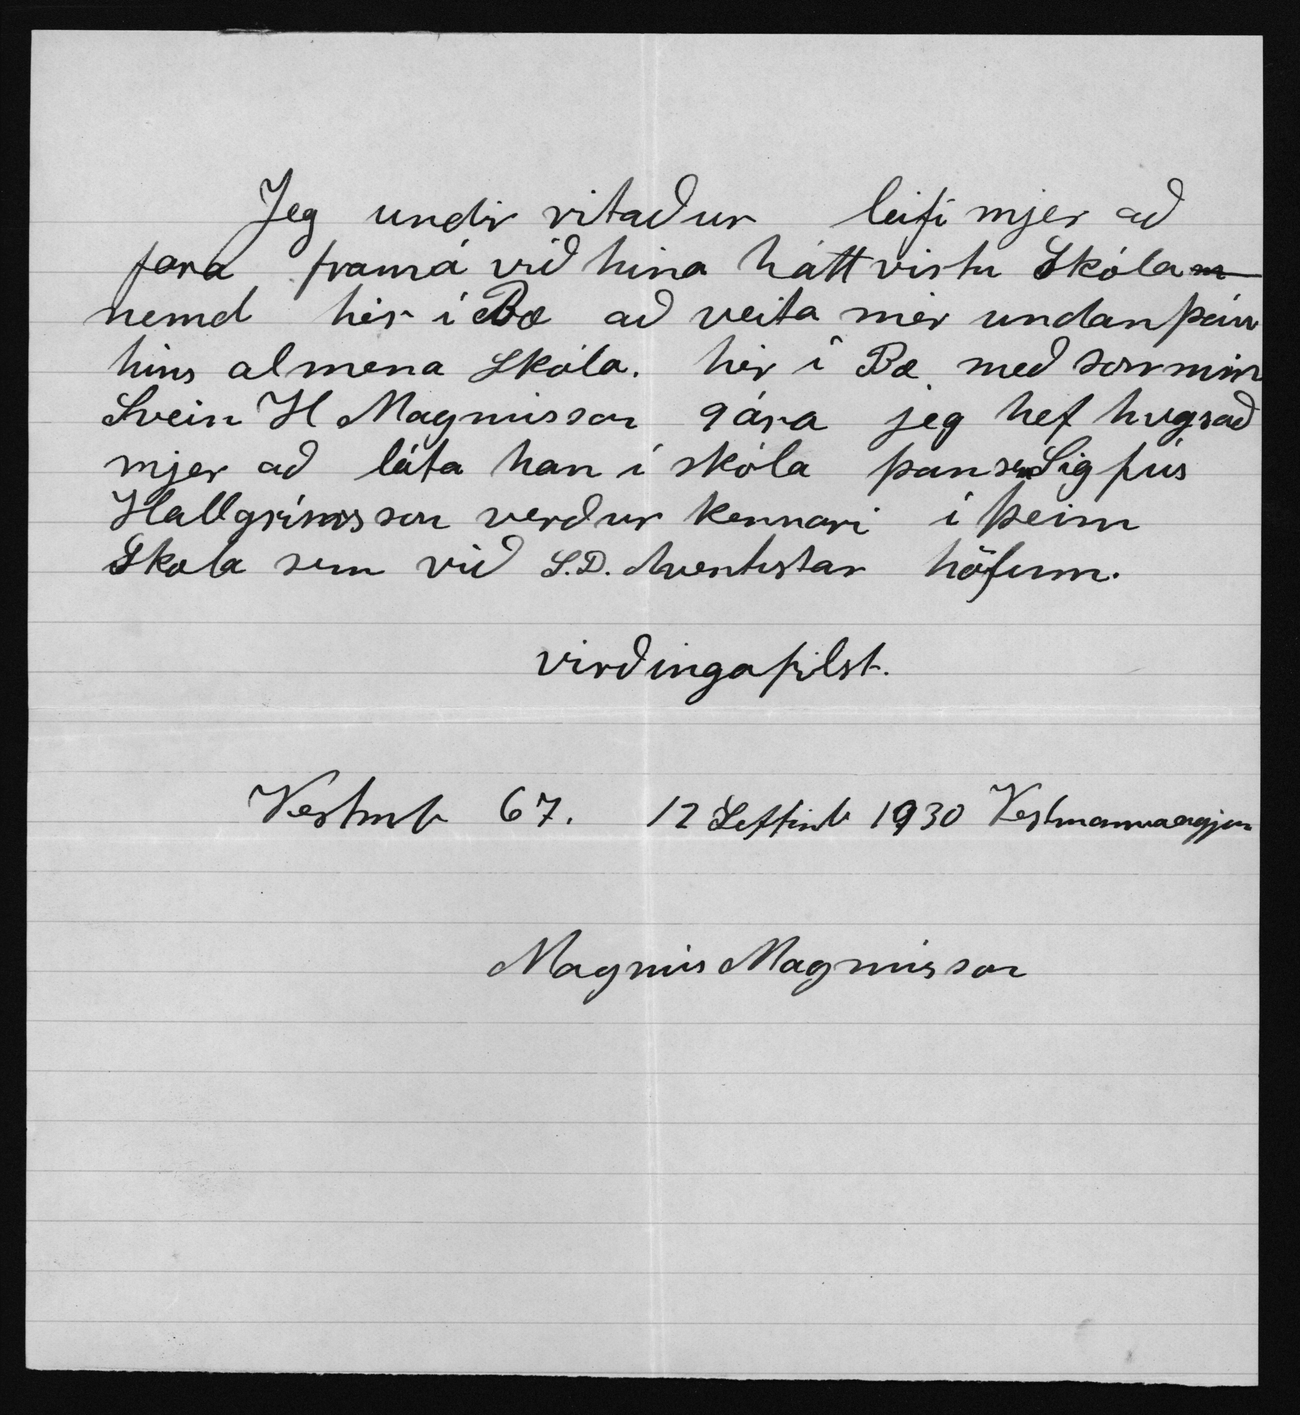 Jeg undir ritaður leifi mjer að
fara framá við hina háttvirtu Skóla
nemd hér í Bæ að veita mér undanþáu
hins almena Skóla. hér í Bæ með son minn
Svein H Magnússon 9 ára jeg hef hugsað
mjer að láta han í skóla þan sem Sigfús
Hallgrímsson verður kennari í þeim
Skóla sem við S.D. Aventistar höfum.
virðingafilst.
Vestmb 67. 12 Seftimb 1930 Vestmannaeyjum
Magnús Magnússon